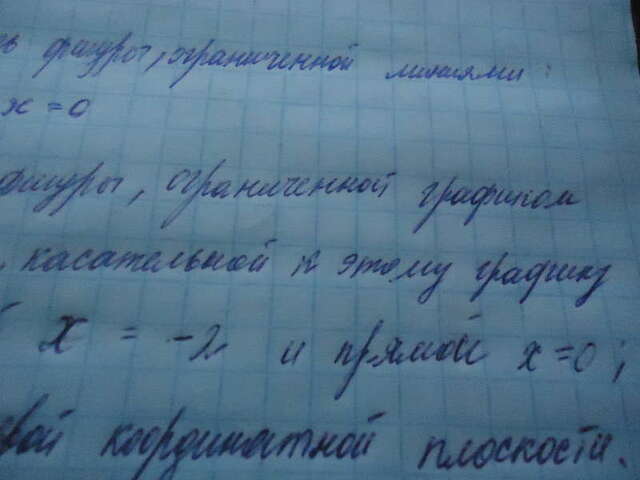 фигуры, ограниченной линиями:
x = 0
фигуры, ограниченной графиком
, касательной к этому графику
x = -2 и прямой x = 0;
координатной плоскости.